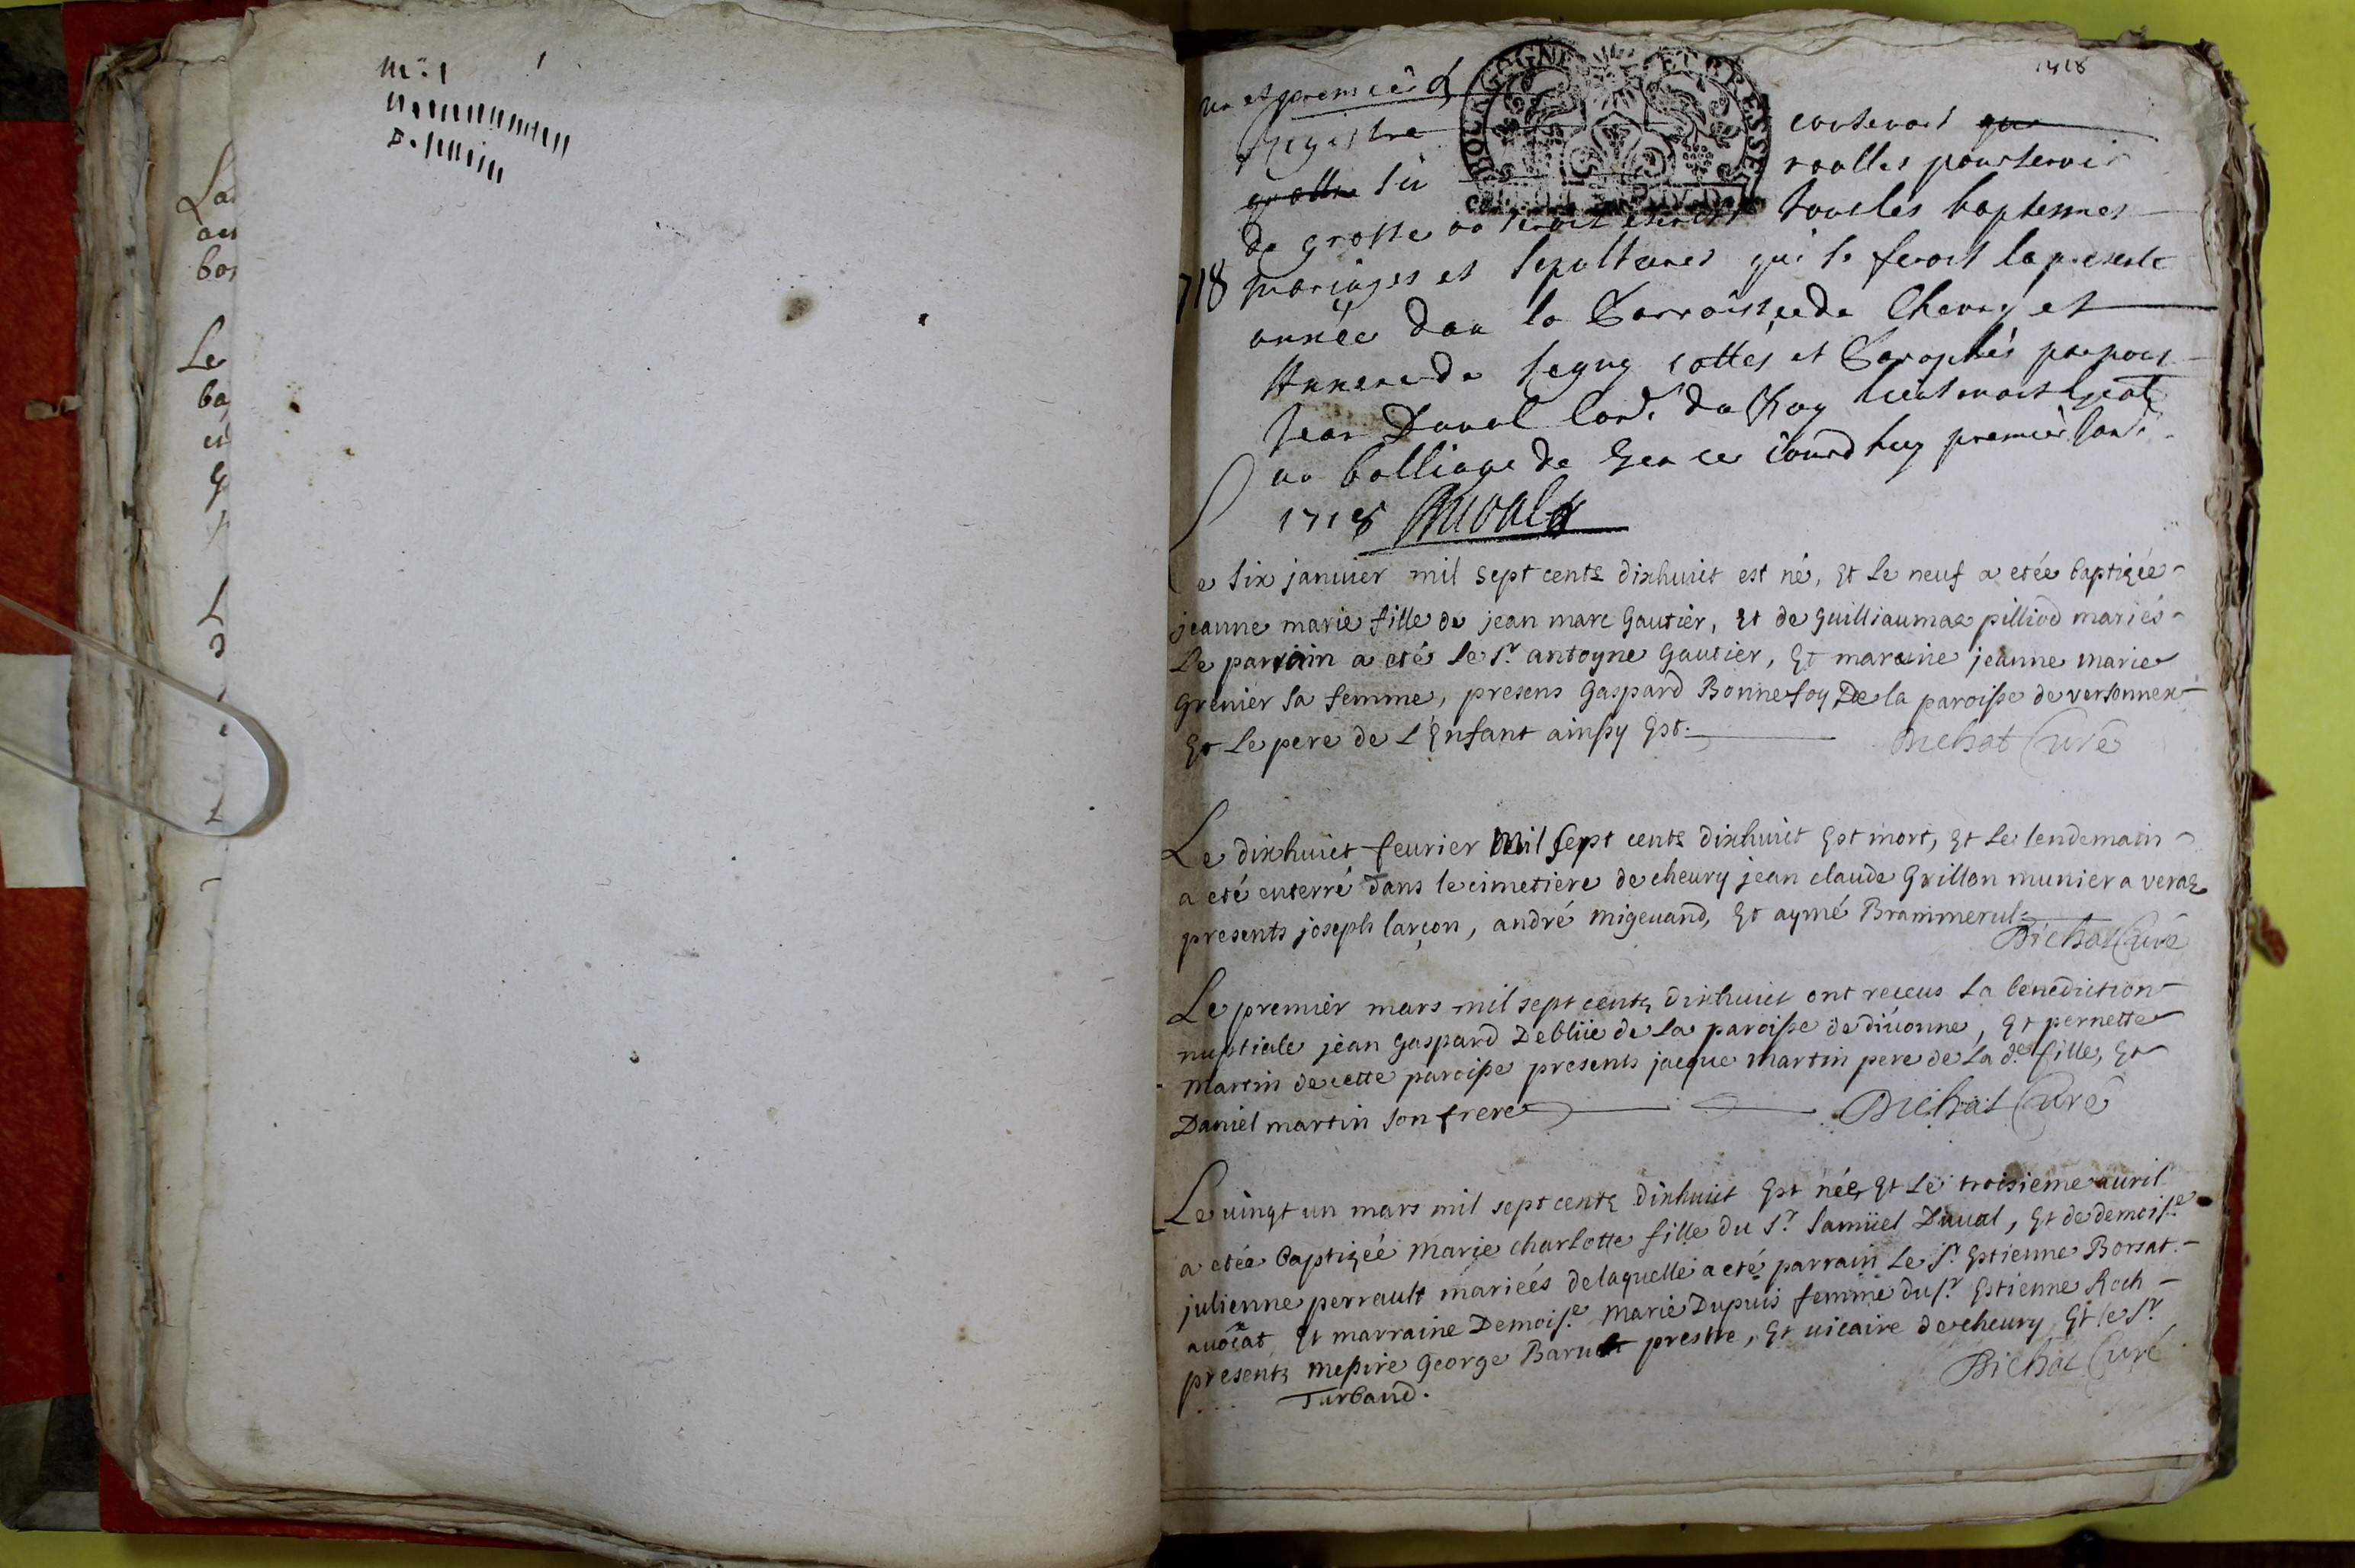 m. 1
La
au
bo
Le
ba
et
L
1718
un et premier
BOURGOGNE ET BRESSE
Registre contenant
six roolles pour servir
de grosse ou seront escrist tous les baptesmes
718 mariages et sepultures qui se feront la presente
année dan la Parroisse de Chevry et
Annexe de Segny cottés et Paraphés par nous
Jean Duval Con.r du Roy lieutenant g'eal
au balliage de Gex ce iourd huy premier Janv.
1718 Duval
e six janvier mil sept cents dixhuict est né, Et Le neuf a etée baptizée
jeanne marie fille de jean marc Gautier, Et de guilliaumaz pilliod mariés
Le parrain a eté Le S.r antoyne Gautier, Et maraine jeanne marie
Grenier sa femme, presens Gaspard Bonnefoy De la paroisse de versonnex
Et Le pere de L'Enfant ainssy Est. Bichat Curé
Le dixhuict feurier Mil sept cents dixhuict Est mort, Et Le lendemain
a eté enterré dans le cimetiere de cheury jean claude Grillon munier a veraz
presents joseph larçon, andré migeuand, Et aymé Brammerel. Bichat Curé
Le premier mars mil sept cents dixhuict ont receus La benediction
nuptiale jean Gaspard Deblüe de La paroisse de diuonne, Et pernette
martin de cette paroisse presents jacque martin pere de La d.e fille, Et
Daniel martin son frere Bichat Curé
Le uingt un mars mil sept cents dixhuict Est née, Et Le troisieme auril
a etée baptizeé marie charlotte fille du S.r Samüel Duual, Et de demois.e
julienne perrault marieés de laquelle a eté parrain Le S.r Estienne Borsat
auocat Et marraine Demois.e Marie Dupuis femme du S.r Estienne Roch
presents messire George Baru prestre, Et uicaire de cheury Et le S.r
Turbaud. Bichat Curé